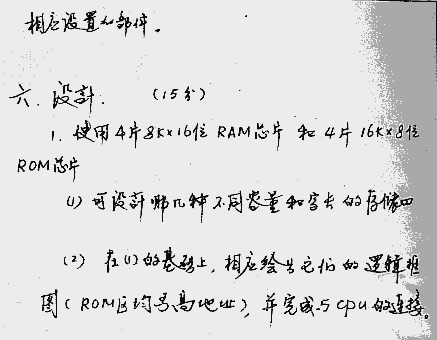 相应设置的部件。
六、设计. (15分)
1. 使用4片8K×16位 RAM芯片 和 4片 16K×8位
ROM芯片
(1) 可设计哪几种不同容量和字长的存储四
(2) 在(1)的基础上,相应绘出它们的逻辑框
图(ROM区均另高地址),并完成与CPU的连接。